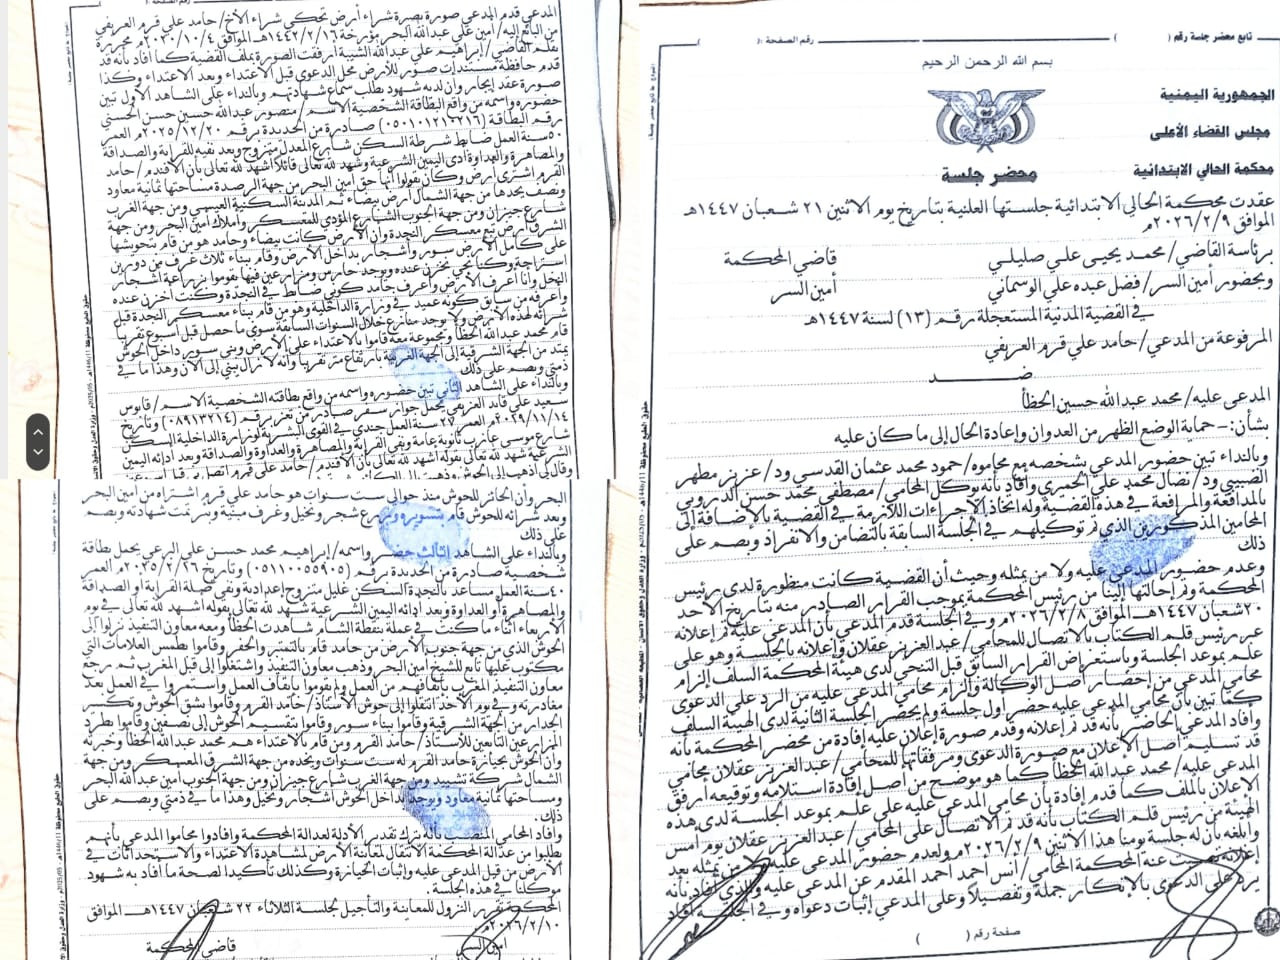 تابع محضر جلسة رقم ( )
رقم الصفحة :( )
بسم الله الرحمن الرحيم
الجمهورية اليمنية
مجلس القضاء الأعلى
محكمة الحالي الابتدائية
محضر جلسة
عقدت محكمة الحالي الابتدائية جلستها العلنية بتاريخ يوم الاثنين ٢١ شعبان ١٤٤٧هـ
الموافق ٢٠٢٦/٢/٩م
برئاسة القاضي/ محمد يحيى علي صليلي قاضي المحكمة
وبحضور أمين السر/ فضل عبده علي الوسماني أمين السر
في القضية المدنية المستعجلة رقم (١٣) لسنة ١٤٤٧هـ
المرفوعة من المدعي/ حامد علي قرم العريفي
ضـــــد
المدعى عليه/ محمد عبدالله حسين الحظأ
بشأن:- حماية الوضع الظهر من العدوان وإعادة الحال إلى ما كان عليه
وبالنداء تبين حضور المدعي بشخصه مع محاموه/ حمود محمد عثمان القدسي ود/ عزيز مطهر
الضبيبي ود/ نضال محمد علي الحميري وأفاد بأنه يوكل المحامي/ مصطفى محمد حسن الدروبي
بالمدافعة والمرافعة في هذه القضية وله اتخاذ الإجراءات اللازمة في القضية بالإضافة إلى
المحامين المذكورين الذي تم توكيلهم في الجلسة السابقة بالتضامن والانفراد وبصم على
ذلك
وعدم حضور المدعى عليه ولا من يمثله وحيث أن القضية كانت منظورة لدى رئيس
المحكمة وتم إحالتها إلينا من رئيس المحكمة بموجب القرار الصادر منه بتاريخ الأحد
٢٠ شعبان ١٤٤٧هـ الموافق ٢٠٢٦/٢/٨م وفي الجلسة قدم المدعي بأن المدعى عليه تم إعلانه
عبر رئيس قلم الكتاب بالاتصال للمحامي/ عبدالعزيز عقلان وإعلانه بالجلسة وهو على
علم بموعد الجلسة وباستعراض القرار السابق قبل التنحي لدى هيئة المحكمة السلف إلزام
محامي المدعي من إحضار أصل الوكالة وإلزام محامي المدعى عليه من الرد على الدعوى
كما تبين بأن محامي المدعى عليه حضر أول جلسة ولم يحضر الجلسة الثانية لدى الهيئة السلف
وأفاد المدعي الحاضر بأنه قد تم إعلانه وقدم صورة إعلان عليه إفادة من محضر المحكمة بأنه
قد تسليم أصل الإعلان مع صورة الدعوى ومرفقاتها للمحامي/ عبدالعزيز عقلان محامي
المدعى عليه/ محمد عبدالله الحظأ كما هو موضح من أصل إفادة استلامه وتوقيعه أرفق
الإعلان بالملف كما قدم إفادة بأن محامي المدعى عليه على علم بموعد الجلسة لدى هذه
الهيئة من رئيس قلم الكتاب بأنه قد تم الاتصال على المحامي/ عبدالعزيز عقلان يوم أمس
وأبلغه بأن له جلسة يومنا هذا الاثنين ٢٠٢٦/٢/٩م ولعدم حضور المدعى عليه ولا من يمثله بعد
إعلانه نصبت عنه المحكمة المحامي/ أنس أحمد أحمد المقدم عن المدعى عليه والذي أفاد بأنه
يرد على الدعوى بالإنكار جملة وتفصيلاً وعلى المدعي إثبات دعواه وفي الجلسة أفاد
صفحة رقم ( )
المدعي قدم المدعي صورة بصرة شراء أرض تحكي شراء الأخ/ حامد علي قرم العريفي
من البائع إليه/ أمين علي عبدالله البحر بؤرخة ١٤٤٢/٢/١٦هـ الموافق ٢٠٢٠/١٠/٤م محررة
بقلم القاضي/ إبراهيم علي عبدالله الشيبة أرفقت الصورة بملف القضية كما أفاد بأنه قد
قدم حافظة مستندات صور للأرض محل الدعوى قبل الاعتداء وبعد الاعتداء وكذا
صورة عقد إيجار وأن لديه شهود يطلب سماع شهادتهم وبالنداء على الشاهد الأول تبين
حضوره واسمه من واقع البطاقة الشخصية الاسم/ منصور عبدالله حسين حسن الحسني
صادرة من الحديدة برقم ٢٠٢٥/١٢/٢٠م العمر
٥٠ سنة العمل ضابط شرطة السكن شارع المعدل متزوج وبعد نفيه للقرابة والصداقة
والمصاهرة والعداوة أدى اليمين الشرعية وشهد لله تعالى قائلاً أشهد لله تعالى بأن الأفندم/ حامد
القرم اشترى أرض وكان يقولوا أنها حق أمين البحر من جهة الرصدة مساحتها ثمانية معاود
ونصف يحدها من جهة الشمال أرض بيضاء ثم المدينة السكنية العيسى ومن جهة الغرب
شارع جيزان ومن جهة الجنوب الشارع المؤدي للمعسكر وأملاك أمين البحر ومن جهة
الشرق أرض تبع معسكر النجدة وأن الأرض كانت بيضاء وحامد هو من قام بتحويشها
على كامل الأرض سور وأشجار بداخل الأرض وقام ببناء ثلاث غرف من دورين
النخل وأنا أعرف الأرض وأعرف حامد كوني ضابط في النجدة وكنت أخزن عنده
وأعرفه من سابق كونه عميد في وزارة الداخلية وهو من قام ببناء معسكر النجدة قبل
شرائه لهذه الأرض ولا يوجد منازع خلال السنوات السابقة سوى ما حصل قبل أسبوع تقريباً
قام محمد عبدالله الحظأ ومجموعة معه قاموا بالاعتداء على الأرض وبنى سور داخل الحوش
يمتد من الجهة الشرقية إلى الجهة الغربية بارتفاع متر تقريباً وأنه لا زال يبني إلى الآن وهذا ما في
ذمتي وبصم على ذلك
وبالنداء على الشاهد الثاني تبين حضوره واسمه من واقع بطاقته الشخصية الاسم/ قابوس
سعيد علي قايد العزيهي يحمل جواز سفر صادر من تعز برقم (٠٨٩١٣٢١٤) وتاريخ
٢٠٢٩/١١/١٤م العمر ٢٧ سنة العمل جندي في القوى البشرية لوزارة الداخلية السكن
شارع موسى عازب ثانوية عامة ونفى القرابة والمصاهرة والعداوة والصداقة وبعد أدائه اليمين
الشرعية شهد لله تعالى بقوله أشهد لله تعالى بأن الأفندم/ حامد علي قرم اتصل بي
البحر وأن الحائز للحوش منذ حوالي ست سنوات هو حامد علي قرم اشتراه من أمين البحر
وبعد شرائه للحوش قام بتسويره وزرع شجر ونخيل وغرف مبنية وبرتمت شهادته وبصم
على ذلك
وبالنداء على الشاهد الثالث حضر واسمه/ إبراهيم محمد حسن علي البرعي يحمل بطاقة
شخصية صادرة من الحديدة برقم (٠٥١١٠٠٥٥٩٠٥) وتاريخ ٢٠٢٥/٢/٢٦م العمر
٤٠ سنة العمل مساعد بالنجدة السكن غليل متزوج إعدادية ونفى صلة القرابة أو الصداقة
والمصاهرة أو العداوة وبعد أدائه اليمين الشرعية شهد لله تعالى بقوله أشهد لله تعالى في يوم
الأربعاء أثناء ما كنت في عملة بنقطة الشام شاهدت الحظأ ومعه معاون التنفيذ نزلوا إلى
الحوش الذي من جهة جنوب الأرض من حامد قام بالتمتير والحفر وقاموا بطمس العلامات التي
مكتوب عليها تابع للشيخ أمين البحر وذهب معاون التنفيذ واشتغلوا إلى قبل المغرب ثم رجع
معاون التنفيذ المغرب بإيقافهم من العمل ولم يقوموا بإيقاف العمل واستمروا في العمل بعد
مغادرته وفي يوم الأحد انتقلوا إلى حوش الأستاذ/ حامد القرم وقاموا بشق الحوش وتكسير
الجدار من الجهة الشرقية وقاموا ببناء سور وقاموا بتقسيم الحوش إلى نصفين وقاموا بطرد
المزارعين التابعين للأستاذ/ حامد القرم ومن قام بالاعتداء هم محمد عبدالله الحظأ وخبرته
وأن الحوش بحيازة حامد القرم له ست سنوات ويحده من جهة الشرق المعسكر ومن جهة
الشمال شركة تشييد ومن جهة الغرب شارع جيزان ومن جهة الجنوب أمين عبدالله البحر
ومساحتها ثمانية معاود ويوجد بداخل الحوش أشجار ونخيل وهذا ما في ذمتي وبصم على
ذلك.
وأفاد المحامي المنصب بأنه يترك تقدير الأدلة لعدالة المحكمة وأفادوا محاموا المدعي بأنهم
يطلبوا من عدالة المحكمة الانتقال لمعاينة الأرض لمشاهدة الاعتداء والاستحداثات في
الأرض من قبل المدعى عليه وإثبات الحيازة وكذلك تأكيداً لصحة ما أفاد به شهود
موكلنا في هذه الجلسة.
المحكمة تقرر النزول للمعاينة والتأجيل بجلسة الثلاثاء ٢٢ شعبان ١٤٤٧هـ الموافق
٢٠٢٦/٢/١٠م
أمين السر قاضي المحكمة